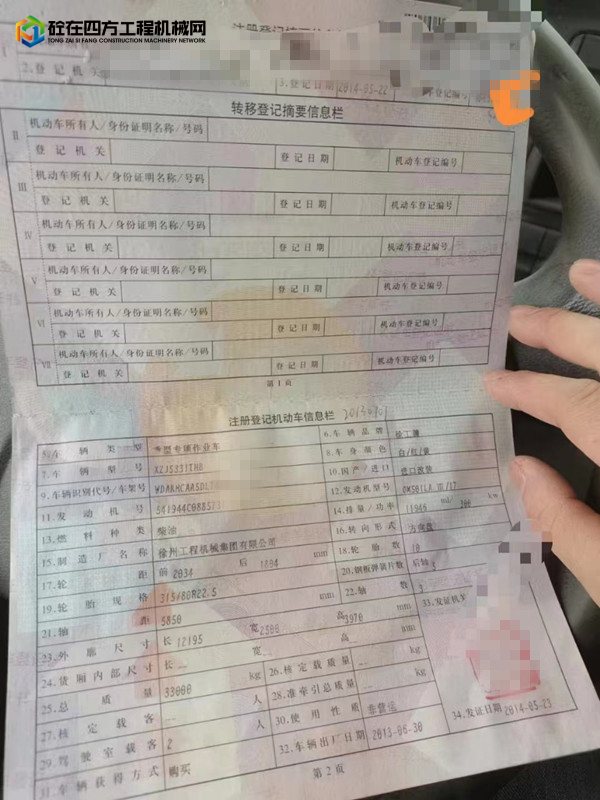 砼在四方工程机械网
TONG ZAI SI FANG CONSTRUCTION MACHINERY NETWORK
2.登记机关 3.登记日期 2014-05-22
转移登记摘要信息栏
II 机动车所有人/身份证明名称/号码
登记机关 登记日期 机动车登记编号
III 机动车所有人/身份证明名称/号码
登记机关 登记日期 机动车登记编号
IV 机动车所有人/身份证明名称/号码
登记机关 登记日期 机动车登记编号
V 机动车所有人/身份证明名称/号码
登记机关 登记日期 机动车登记编号
VI 机动车所有人/身份证明名称/号码
登记机关 登记日期 机动车登记编号
VII 机动车所有人/身份证明名称/号码
登记机关 登记日期 机动车登记编号
第1页
注册登记机动车信息栏
5.车辆类型 重型专项作业车 6.车辆品牌 徐工牌
7.车辆型号 XZJ5331THB 8.车身颜色 白/红/黄
9.车辆识别代号/车架号 10.国产/进口
11.发动机号 12.发动机型号
13.燃料种类 柴油 14.排量/功率 11946 ml/ kw
15.制造厂名称 徐州工程机械集团有限公司 16.转向形式 方向盘
17.轮距 前 2034 后 1804 mm 18.轮胎数 10
19.轮胎规格 315/80R22.5 20.钢板弹簧片数 后轴
21.轴距 5850 mm 22.轴数 3
23.外廓尺寸 长 12195 宽 2500 高 3970 mm 33.发证机关
24.货厢内部尺寸 长 宽 高 mm
25.总质量 33000 kg 26.核定载质量 kg
27.核定载客 人 28.准牵引总质量 kg
29.驾驶室载客 2 人 30.使用性质 非营运
31.车辆获得方式 购买 32.车辆出厂日期 2013-06-30 34.发证日期 2014-05-23
第2页